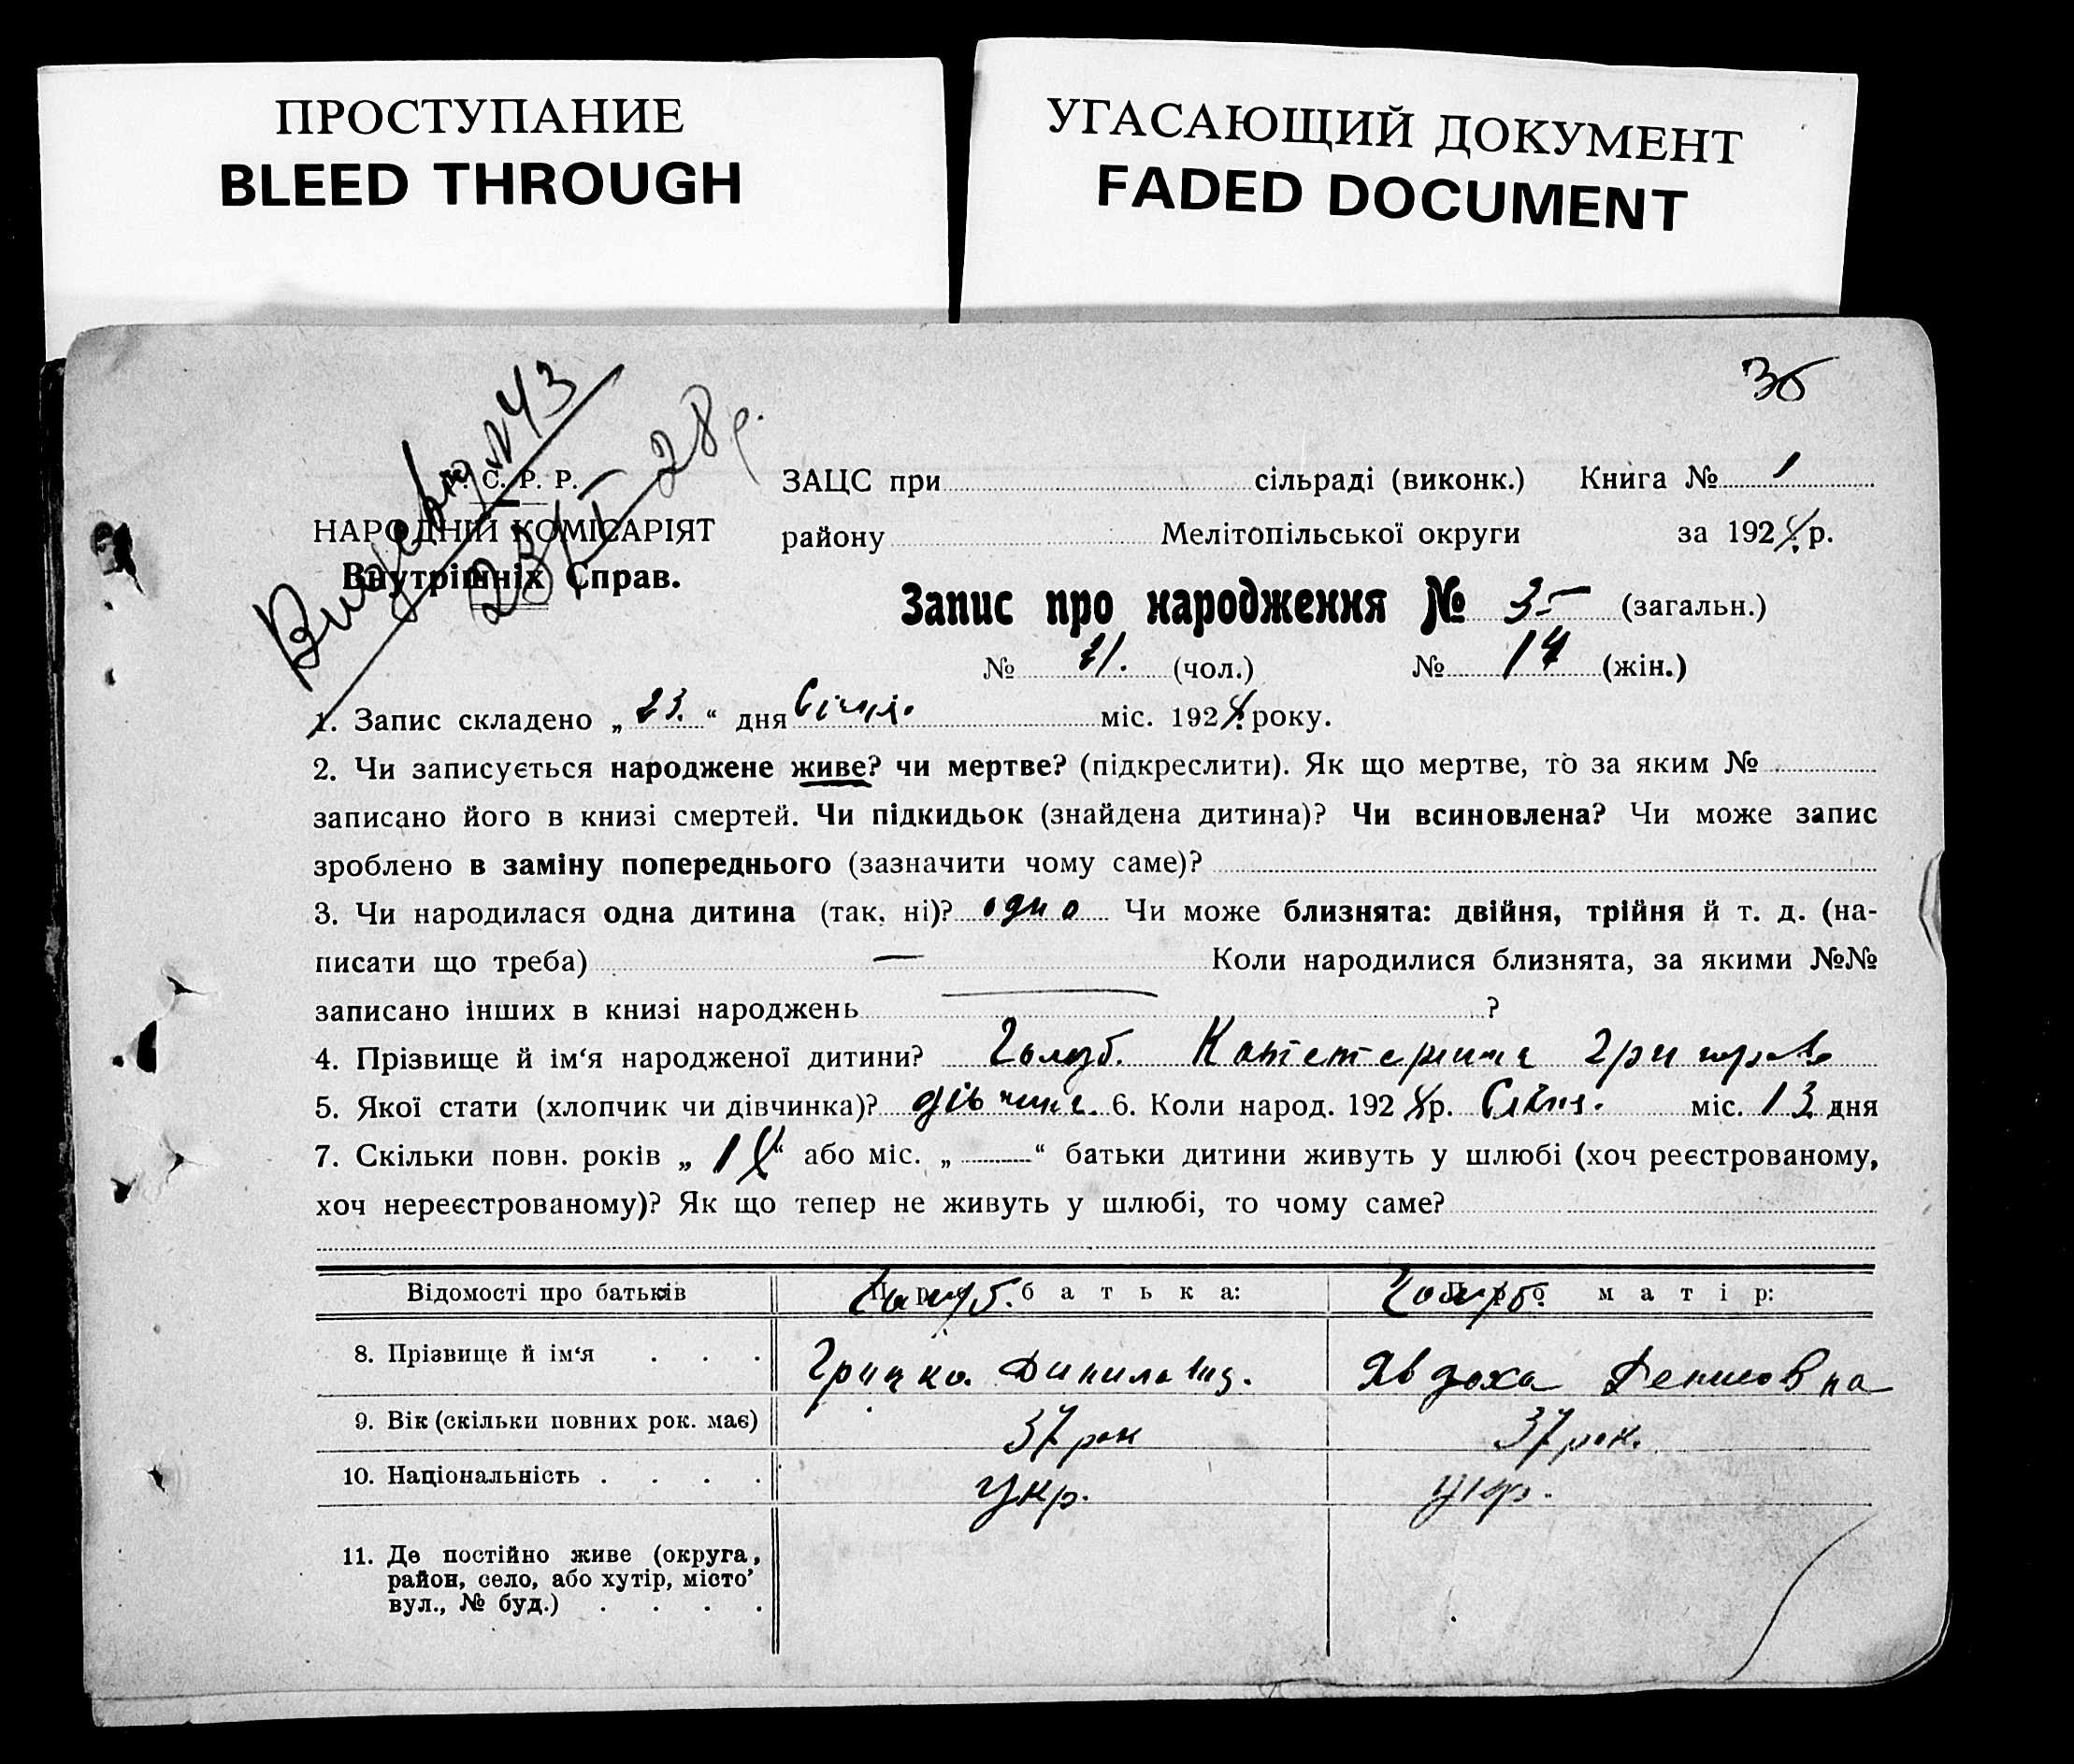 ПРОСТУПАНИЕ
BLEED THROUGH
УГАСАЮЩИЙ ДОКУМЕНТ
FADED DOCUMENT
С. Р. Р.
НАРОДНІЙ КОМІСАРІЯТ
Внутрішніх Справ.
ЗАЦС при сільраді (виконк.) Книга № 1
району Мелітопільської округи за 192 р.
Запис про народження № (загальн.)
№ (чол.) № 14 (жін.)
1. Запис складено „ 23. “ дня Січня. міс. 192 року.
2. Чи записується народжене живе? чи мертве? (підкреслити). Як що мертве, то за яким №
записано його в книзі смертей. Чи підкидьок (знайдена дитина)? Чи всиновлена? Чи може запис
зроблено в заміну попереднього (зазначити чому саме)?
3. Чи народилася одна дитина (так, ні)? одно Чи може близнята: двійня, трійня й т. д. (на-
писати що треба) — Коли народилися близнята, за якими №№
записано інших в книзі народжень — ?
4. Прізвище й ім‘я народженої дитини? Голуб.
5. Якої стати (хлопчик чи дівчинка)? 6. Коли народ. 192 р. Січня. міс. 13 дня
7. Скільки повн. років „ “ або міс. „ “ батьки дитини живуть у шлюбі (хоч реєстрованому,
хоч нереєстрованому)? Як що тепер не живуть у шлюбі, то чому саме?
Відомості про батьків Про батька: Про матір:
Голуб. Голуб.
8. Прізвище й ім‘я . . . Грицко Явдоха Денисовна
9. Вік (скільки повних рок. має) 37 рок 37 рок.
10. Національність . . . . Укр. укр.
11. Де постійно живе (округа,
район, село, або хутір, місто’
вул., № буд.) . . . .